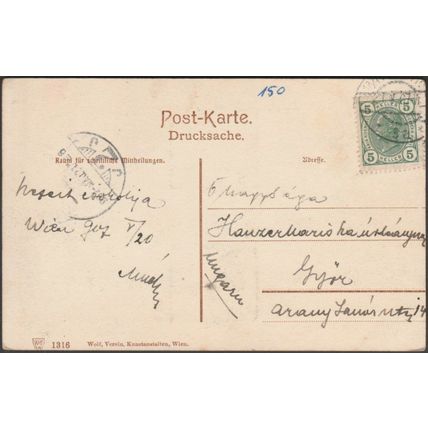 150
Post-Karte.
Drucksache.
5 5
HELLER
5 5
Raum für schriftliche Mittheilungen.
Adresse.
Wien 907 V/20
Ő nagysága
Hanzer Mariska
Ungarn
Győr
Arany János utz 14
1316
Wolf, Verein. Kunstanstalten, Wien.